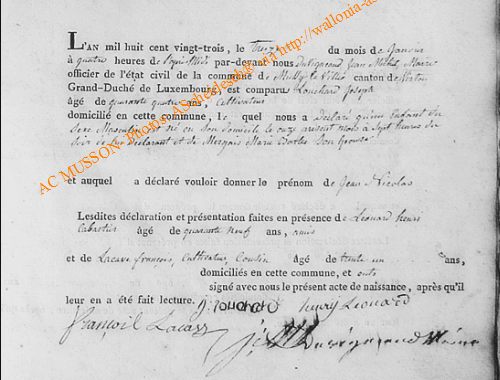 L'AN mil huit cent vingt-trois, le treize du mois de Janvier
à quatre heures de par-devant nous Duvigneaud Jean Michel, Maire
officier de l'état civil de la commune de canton de Virton
Grand-Duché de Luxembourg, est comparu Louchard Joseph
âgé de quarante quatre ans, Cultivateur
domicilié en cette commune, le quel nous a Déclaré qu'un Enfant du
Sexe Masculin Est né en Son Domicile le onze mois a Sept heures du
Soir de Lui Déclarant et de Marie Son Epouse
et auquel a déclaré vouloir donner le prénom de Jean Nicolas
Lesdites déclaration et présentation faites en présence de Léonard henri
Cabartier âgé de quarante neuf ans, amis
et de Lacave françois, Cultivateur, Cousin âgé de trente un ans,
domiciliés en cette commune, et ont
signé avec nous le présent acte de naissance, après qu'il
leur en a été fait lecture. J. Louchard henry Léonard
françois Lacave
AC MUSSON Photos
http://wallonia-as